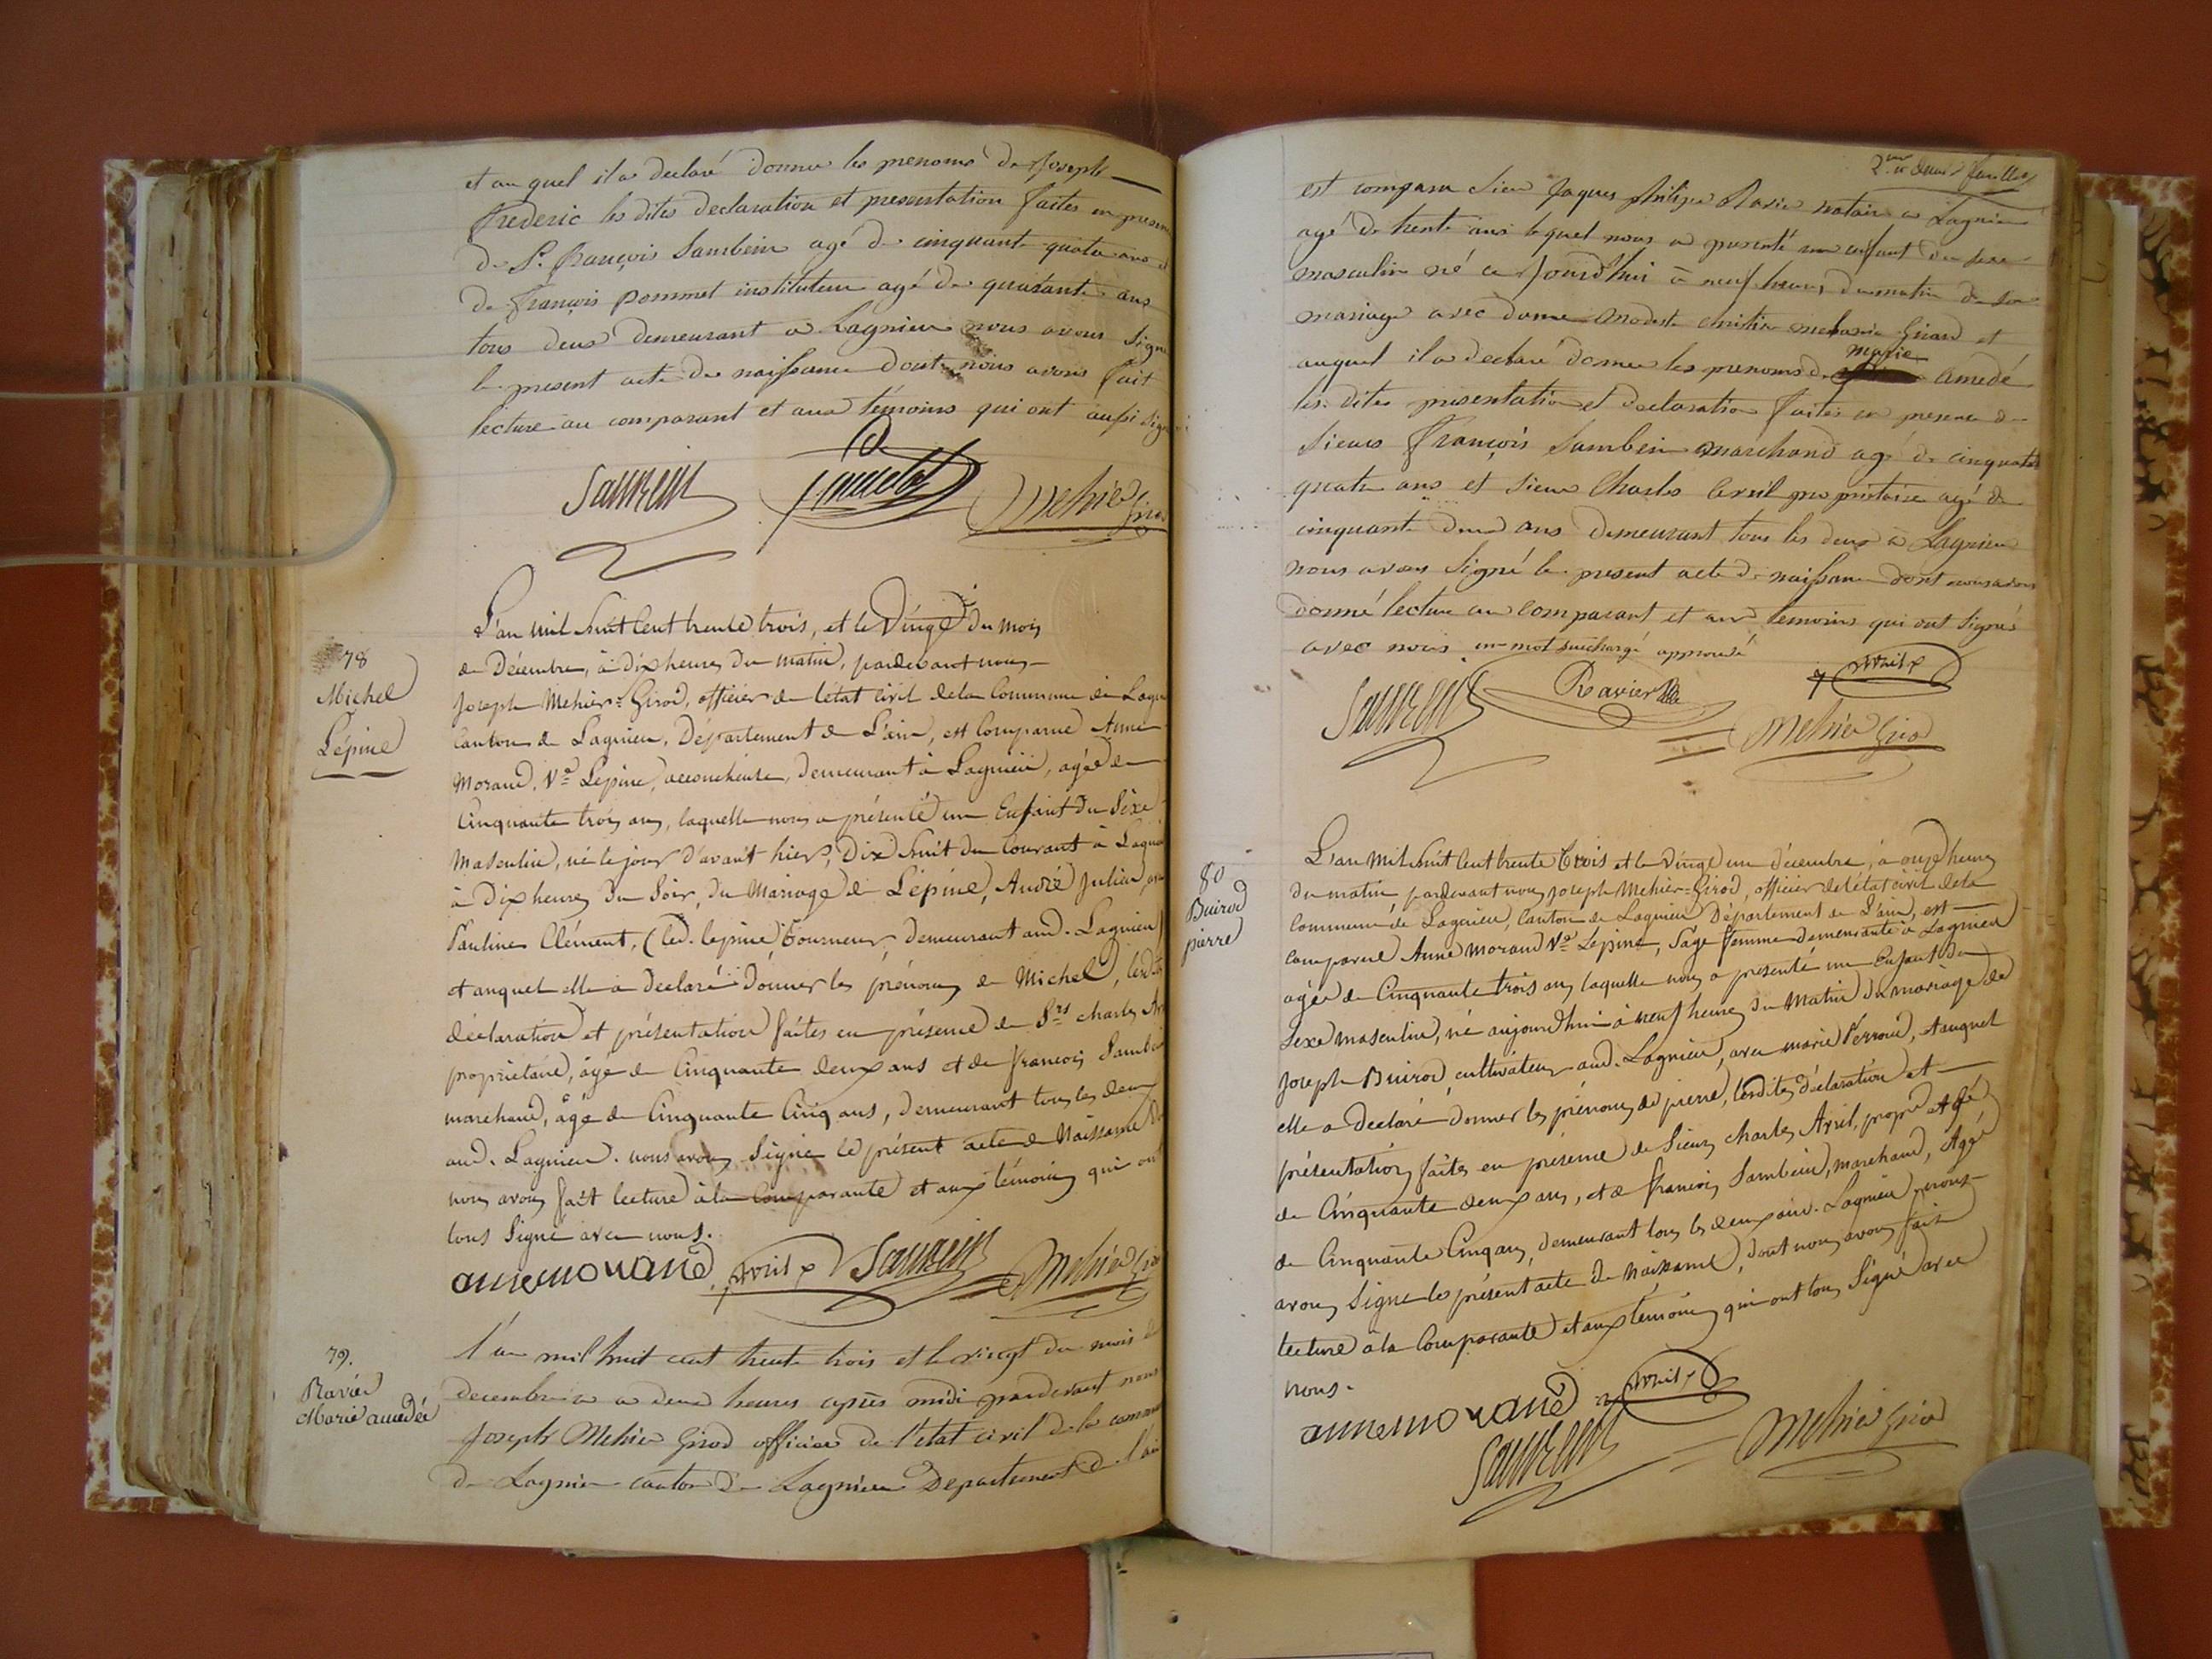 et au quel il a declaré donner les prenoms de Joseph
frederic les dites declaration et presentation faites en presence
de S. françois Sambein agé de cinquante quatre ans et
de françois pommet instituteur agé de quarante ans
tous deux demeurant a Lagnieu nous avons signé
le present acte de naissance dont nous avons fait
lecture au comparant et aux témoins qui ont aussi signé
Sambein Mehier Girod
78
Michel
Lépine
L'an mil huit cent trente trois, et le vingt du mois
de Décembre, à dix heures du matin, pardevant nous
Joseph Mehier=Girod, officier de l'état civil de la Commune de Lagnieu
Canton de Lagnieu, Département de L'ain, est Comparue Anne
Morand, Ve Lepine, accoucheuse, demeurant à Lagnieu, agée de
Cinquante trois ans, laquelle nous a présenté un Enfant du Sexe
Masculin, né le jour d'avant hier, Dix huit du Courant à Lagnieu
à Dix heures du Soir, du Mariage de Lépine, André Julien, avec
Pauline Clément, (led. lepine Tourneur demeurant aud. Lagnieu)
et auquel elle a declaré Donner les prénoms de Michel, lesdites
déclaration et présentation faites en présence de Srs charles Avril
propriétaire, âgé de Cinquante deux ans et de francois Sambein
marchand, âgé de Cinquante Cinq ans, demeurant tous les deux
aud. Lagnieu. nous avons Signé le présent acte de Naissance dont
nous avons fait lecture à la Comparante et aux témoins qui ont
tous Signé avec nous.
anne morand Avril Sambein Mehier Girod
79.
Ravier
Marie amedée
l'an mil huit cent trente trois et le vingt du mois de
decembre a deux heures après midi pardevant nous
Joseph Mehier Girod officier de l'état civil de la commune
de Lagnieu canton de Lagnieu Departement de l'ain
2me et dernier feuillet
est comparu sieur Jaques philipe Ravier notaire a Lagnieu
agé de trente ans lequel nous a presenté un enfant du sexe
masculin né ce Jourd'hui à neuf heures du matin de son
mariage avec dame Modeste Girard et
auquel il a declaré donner les prenoms de marie amedé
les dites présentation et declaration faites en presence de
sieurs françois Sambein marchand agé de cinquante
quatre ans et sieur Charles Avril propriétaire agé de
cinquante deux ans demeurant tous les deux a Lagnieu
nous avons signé le present acte de naissance dont nous avons
donné lecture au comparant et aux temoins qui ont signés
avec nous un mot surchargé approuvé
Sambein Ravier Avril
Mehier Girod
80
Buirod
pierre
L'an Mil huit Cent trente trois et le vingt un décembre, à onze heures
du matin, pardevant nous Joseph Mehier=Girod, officier de l'état civil de la
Commune de Lagnieu, Canton de Lagnieu Département de L'ain, est
comparue Anne Morand Ve Lepine, Sage femme demeurante à Lagnieu
agée de Cinquante trois ans laquelle nous a presenté un Enfant du
Sexe Masculin, né aujourd'hui à neuf heures du Matin du mariage de
Joseph Buirod, cultivateur aud. Lagnieu, avec marie Perroud, et auquel
elle a declaré donner les prénoms de pierre, lesdites déclaration et
présentation faites en présence de Sieurs charles Avril, propre agé
de Cinquante deux ans, et de francois Sambein, marchand, Agé
de Cinquante Cinq ans, demeurant tous les deux aud. Lagnieu, nous
avons Signé le présent acte de Naissance, dont nous avons fait
lecture à la Comparante et aux témoins qui ont tous Signé avec
nous.
anne morand Avril
Sambein Mehier Girod